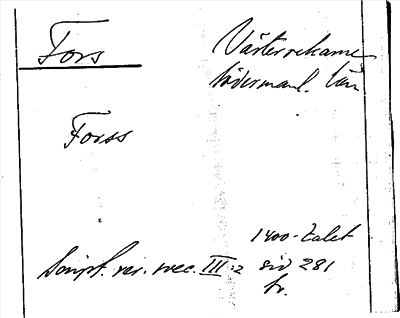 Fors
Västerrekarne
Söderman l. län
Forss
1400-talet
Script. rer. svec. III:2 sid 281
tr.